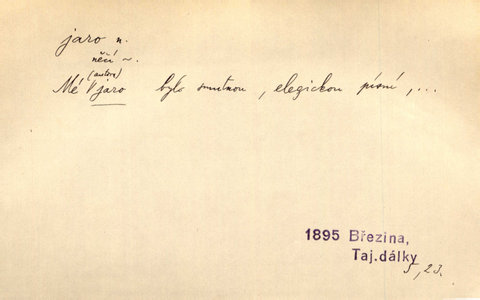 jaro n.
něčí ~.
(autora)
Mé jaro bylo smutnou, elegickou písní, ...
1895 Březina,
Taj.dálky
5, 23.